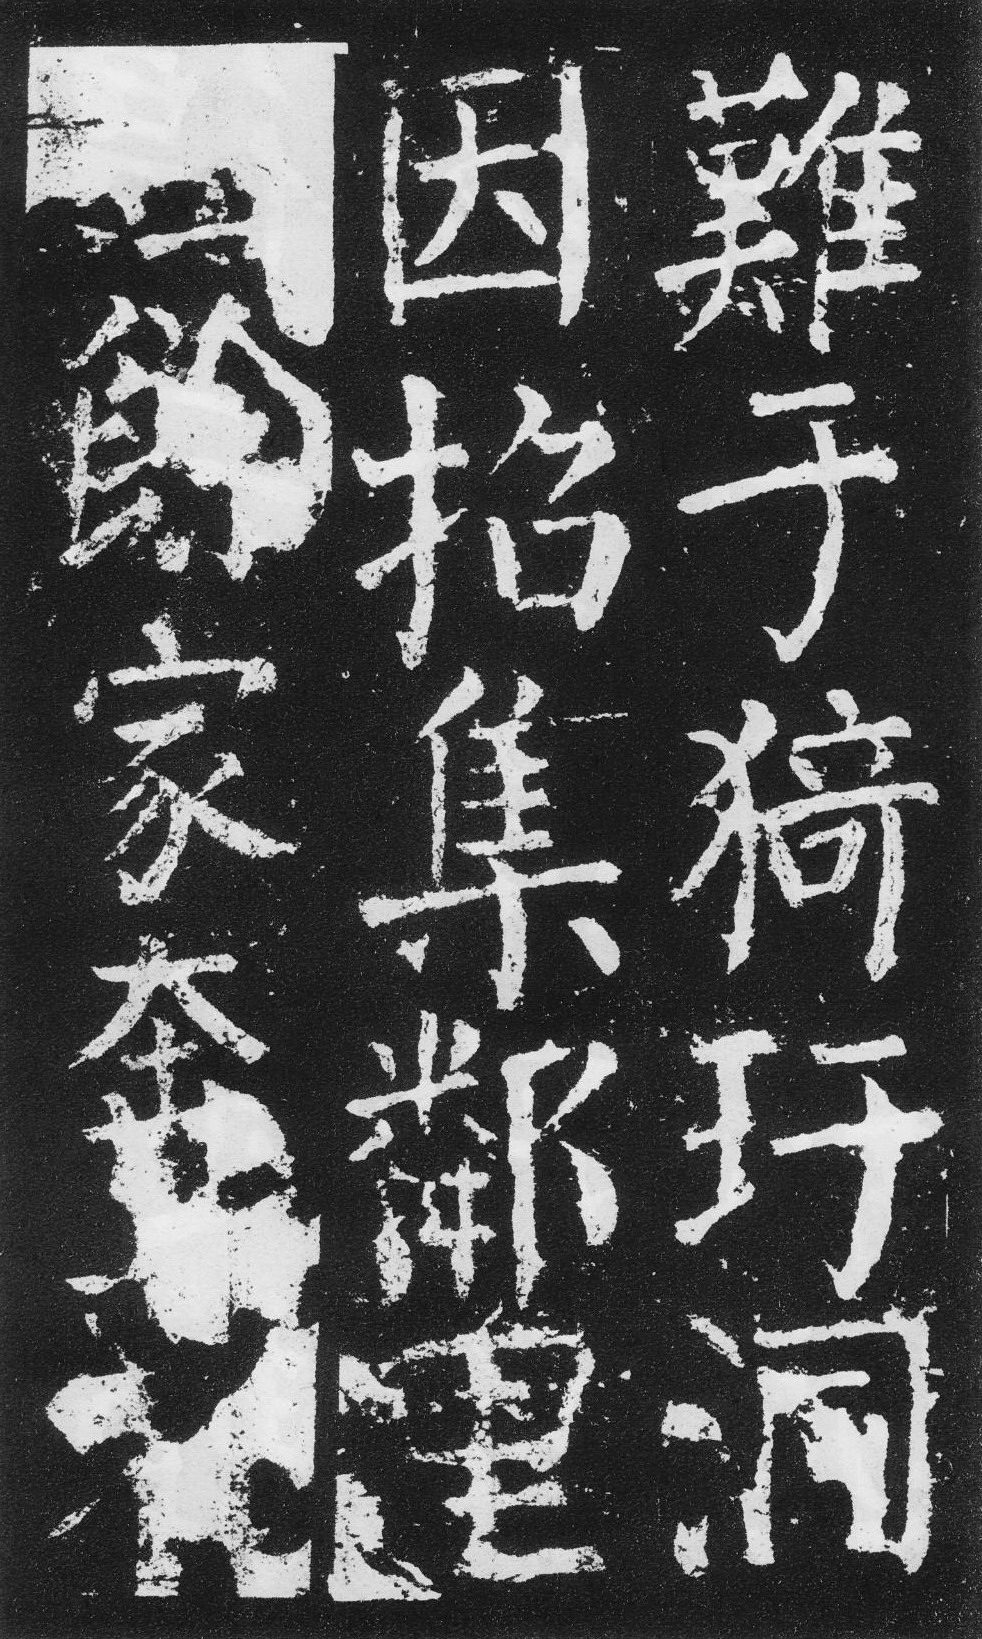 難于猗玗洞
因招集鄰里
家奔